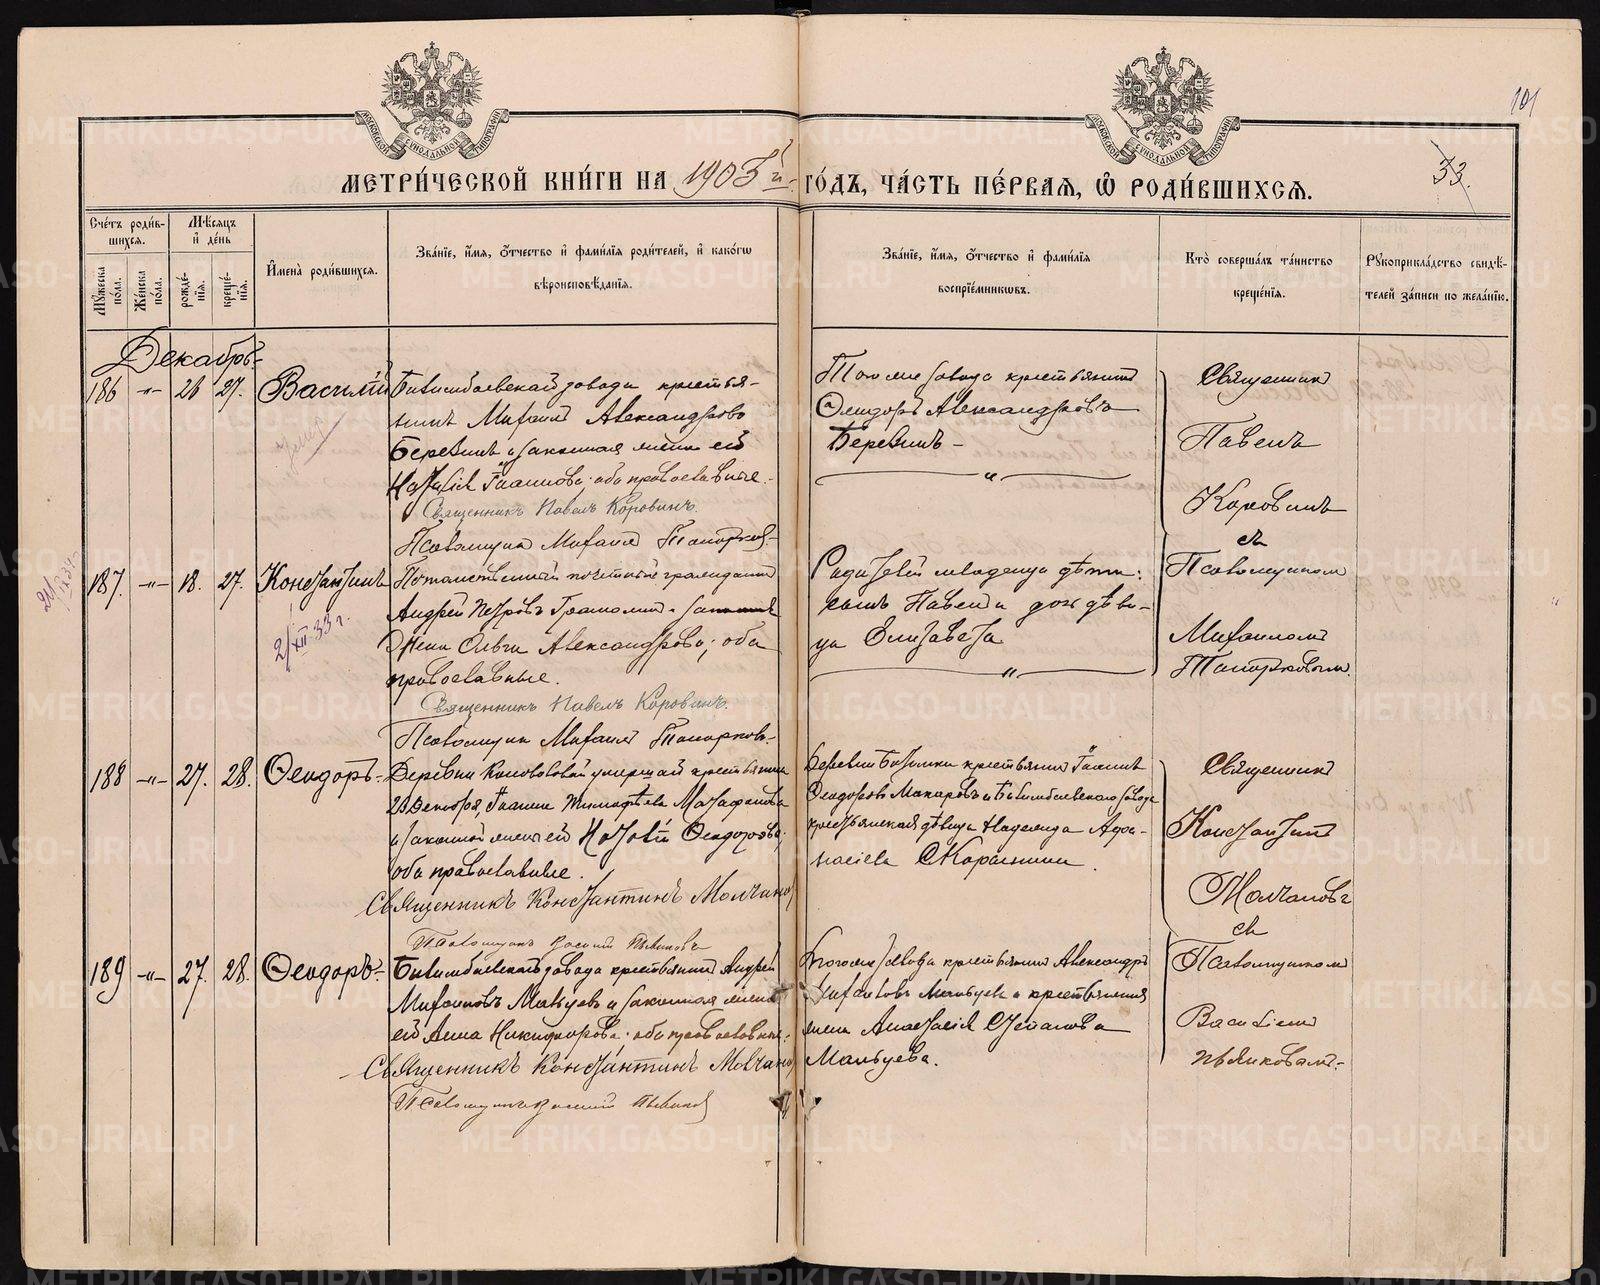 101
33.
МЕТРИ́ЧЕСКОЙ КНИ́ГИ НА 1903й ГО́ДЪ, ЧА́СТЬ ПЕ́РВАЯ, Ѿ РОДИ́ВШИХСѦ.
Сче́тъ роди́в-
шихсѧ.
Мꙋ́жеска пола.
Же́нска пола.
Мѣ́сѧцъ
и҆ де́нь
рожде́-
нїѧ.
креще́-
нїѧ.
И҆мена̀ роди́вшихсѧ.
Зва́нїе, и҆́мѧ, ѻ҆́тчество и҆ фами́лїѧ роди́телей, и҆ како́гѡ
вѣроисповѣ́данїѧ.
Зва́нїе, и҆́мѧ, ѻ҆́тчество и҆ фами́лїѧ
воспрїе́мникѡвъ.
Кто̀ соверша́лъ та́инство
креще́нїѧ.
Рꙋкоприкла́дство свидѣ́-
телей за́писи по жела́нїю.
Декабрь
186 -"- 26 27. Василій
Билимбаевскаго завода крестья-
нинъ Михаилъ Александровъ
Березинъ и законная жена его
Наталія Іоаннова; оба православные.
Священникъ Павелъ Коровинъ.
Псаломщикъ Михаилъ Топорковъ.
Того же завода крестьянинъ
Ѳеодоръ Александровъ
Березинъ -
Священникъ
Павелъ
Коровинъ
съ
Псаломщикомъ
Михаиломъ
Топорковымъ.
187. -"- 18. 27. Константинъ
2/XII 33 г.
Потомственный почетный гражданинъ
Андрей Петровъ и законная
жена Ольга Александрова; оба
православные.
Священникъ Павелъ Коровинъ.
Псаломщикъ Михаилъ Топорковъ.
Родителей младенца дѣти:
сынъ Павелъ и дочь дѣви-
ца Елизавета
188 -"- 27. 28. Ѳеодоръ
Деревни умершаго крестьянина
Декабря, Іоанна Тимофеева
и законной жены его Ѳеодоровой;
оба православные.
Священникъ Константинъ Молчановъ
Псаломщикъ Василій Пьянковъ
Деревни крестьянинъ Іоаннъ
Ѳеодоровъ Макаровъ и Билимбаевскаго завода
крестьянская дѣвица Надежда Афа-
насіева
Священникъ
Константинъ
Молчановъ
съ
Псаломщикомъ
Василіемъ
Пьянковымъ.
189 -"- 27. 28. Ѳеодоръ
Билимбаевскаго завода крестьянинъ Андрей
Михаиловъ Мальцевъ и законная жена
его Анна Никифорова; оба православные.
Священникъ Константинъ Молчановъ
Псаломщикъ Василій Пьянковъ
Того же завода крестьянинъ Александръ
Михаиловъ Мальцевъ и крестьянская
жена Анастасія Степанова
Мальцева.